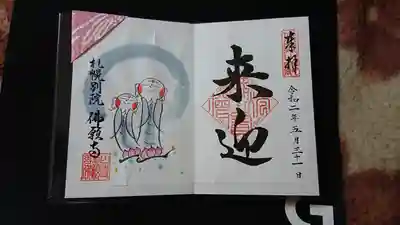 奉拝
来迎
令和二年五月三十一日
札幌別院 佛願寺
G